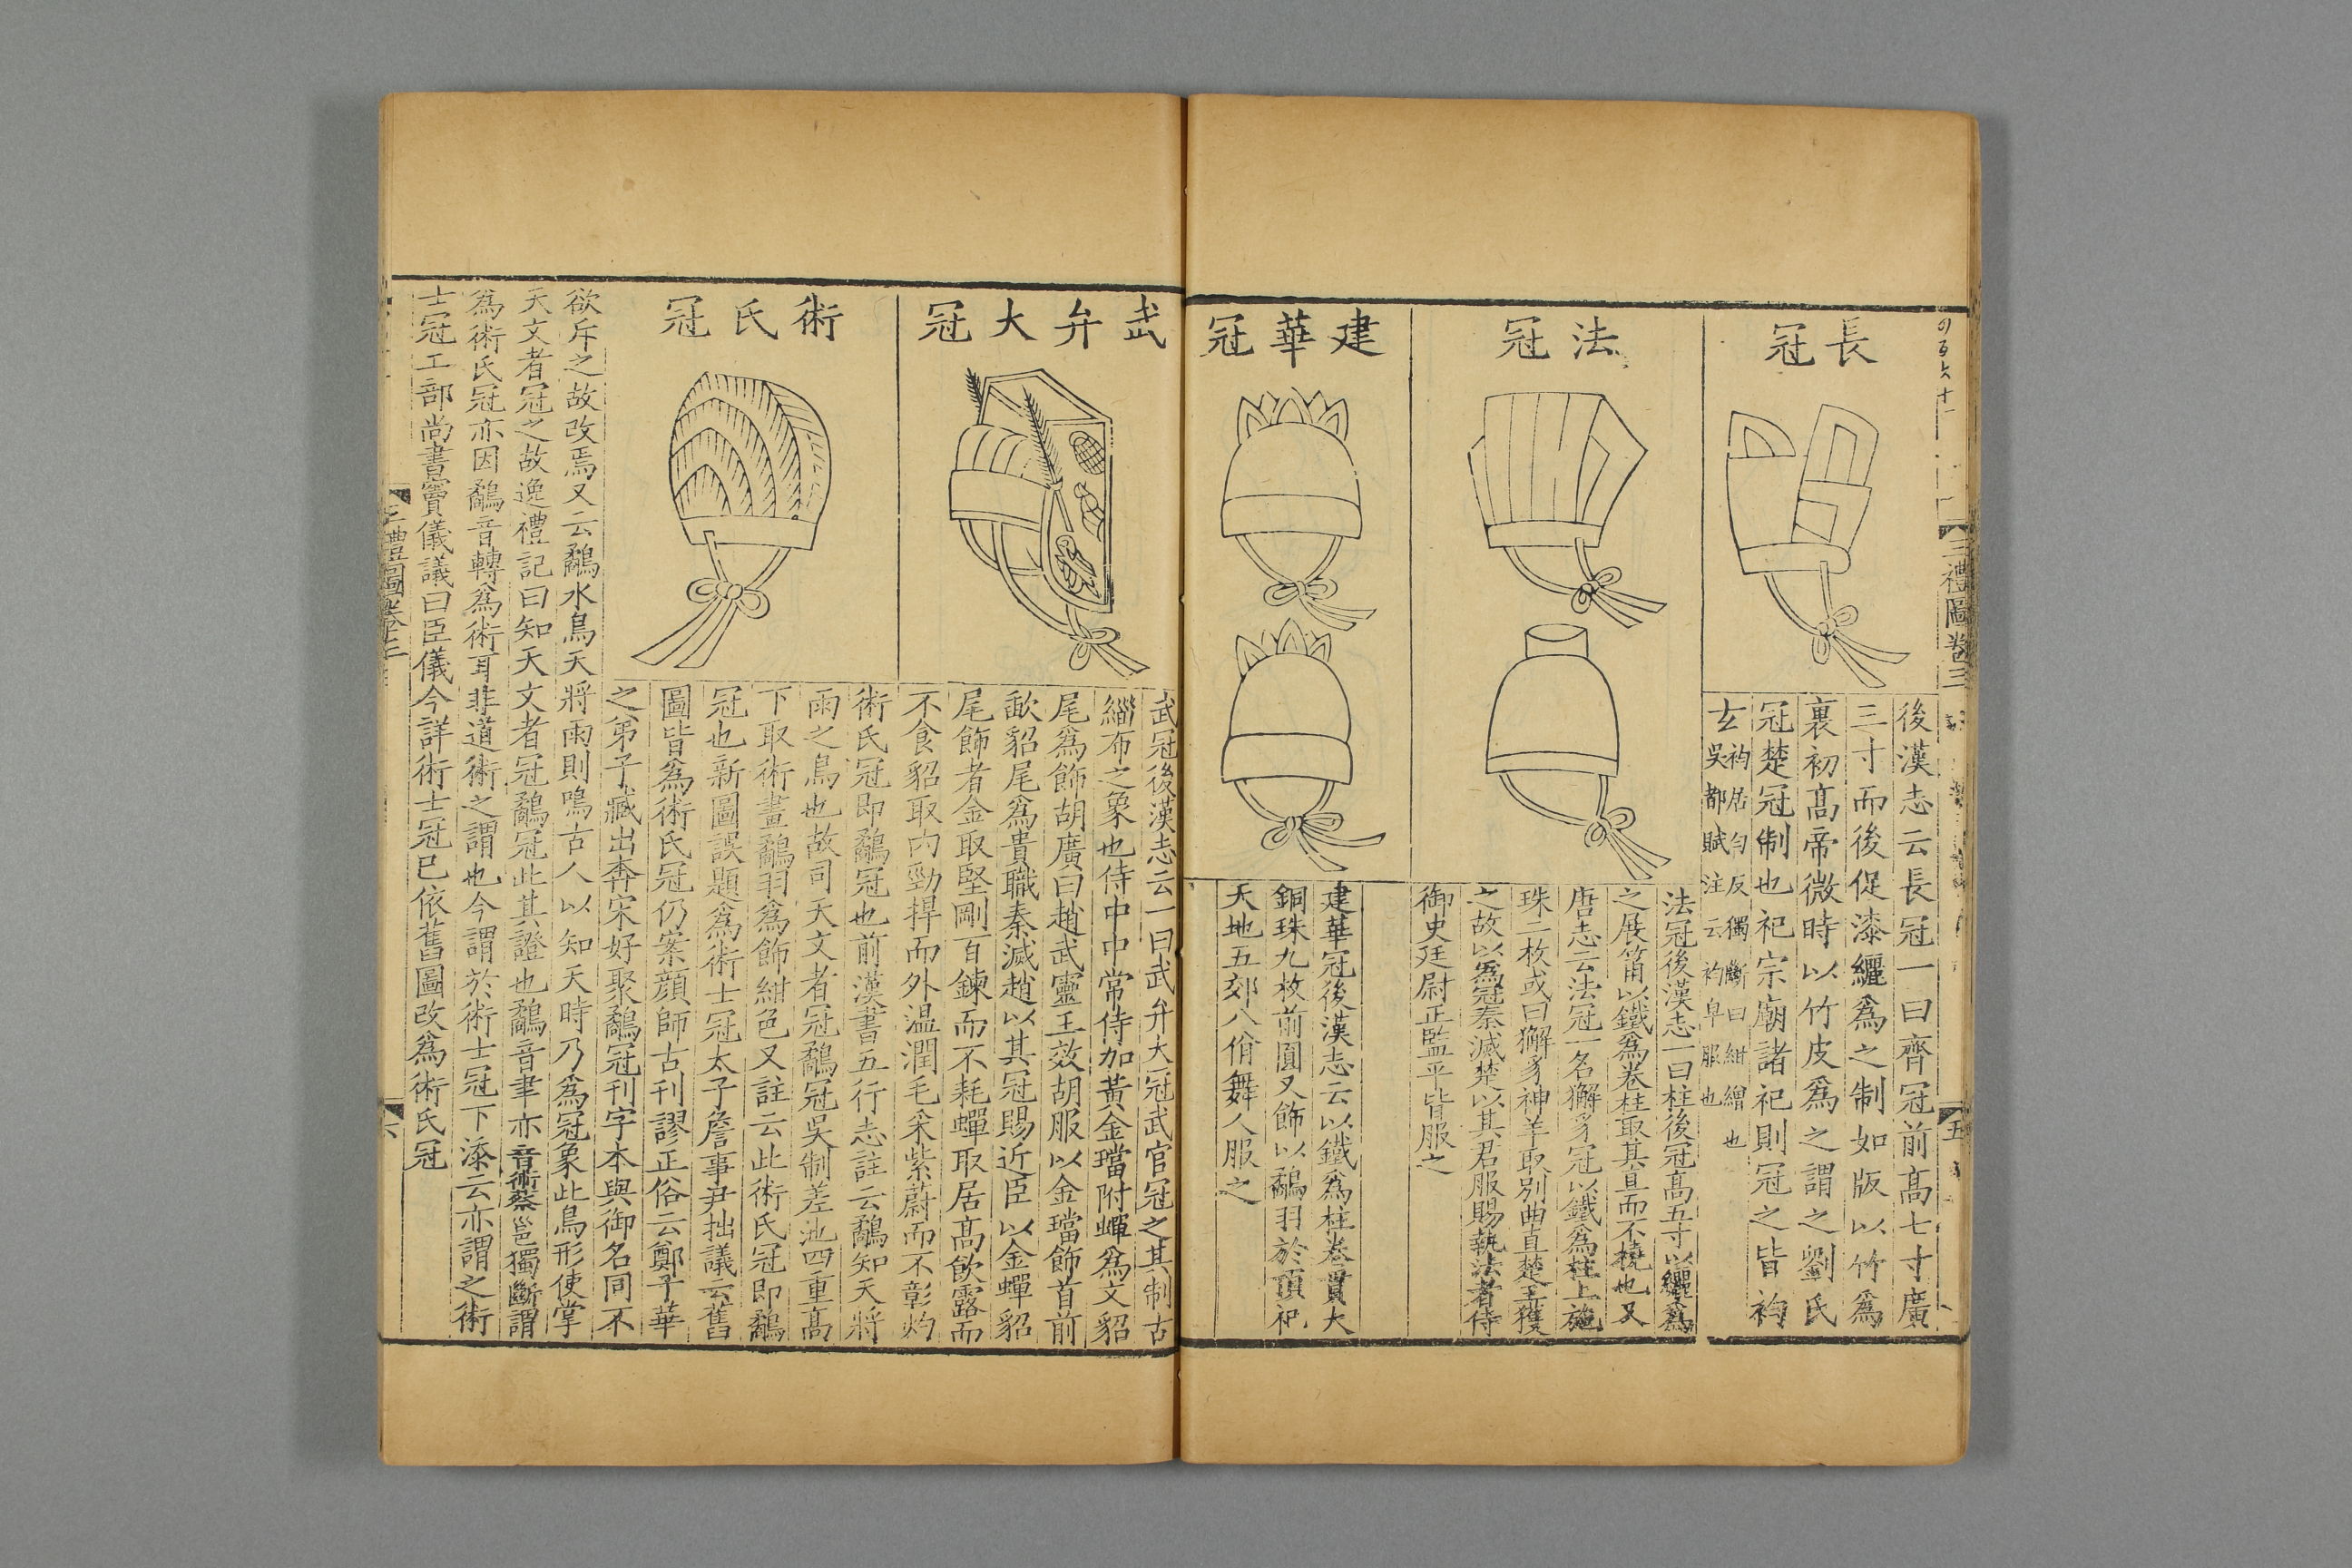 三禮圖卷三
五
長冠
後漢志云長冠一曰齊冠前髙七寸廣
三寸而後促漆纚爲之制如版以竹爲
裏初髙帝微時以竹皮爲之謂之劉氏
冠楚冠制也祀宗廟諸祀則冠之皆袀
玄袀居匀反獨斷曰紺繒也
吳都賦注云袀皁服也
法冠
法冠後漢志一曰柱後冠髙五寸以纚爲
之展筩以鐵爲卷柱取其直而不橈也又
唐志云法冠一名獬豸冠以鐵爲柱上施
珠二枚或曰獬豸神羊取别曲直楚王獲
之故以爲冠秦滅楚以其君服賜執法者侍
御史廷尉正監平皆服之
建華冠
建華冠後漢志云以鐵爲柱卷貫大
銅珠九枚前圓又飾以鷸羽於頂祀
天地五郊八佾舞人服之
武弁大冠
武冠後漢志云一曰武弁大冠武官冠之其制古
緇布之象也侍中中常侍加黃金璫附蟬爲文貂
尾爲飾胡廣曰趙武靈王效胡服以金璫飾首前
歃貂尾爲貴職秦滅趙以其冠賜近臣以金蟬貂
尾飾者金取堅剛百鍊而不耗蟬取居髙飲露而
不食貂取内勁捍而外溫潤毛采紫蔚而不彰灼
術氏冠
術氏冠即鷸冠也前漢書五行志註云鷸知天將
雨之鳥也故司天文者冠鷸冠吳制差池四重髙
下取術畫鷸羽爲飾紺色又註云此術氏冠即鷸
冠也新圖誤題爲術士冠太子詹事尹拙議云舊
圖皆爲術氏冠仍案顔師古刊謬正俗云鄭子華
之弟子臧出奔宋好聚鷸冠刊字本與御名同不
欲斥之故改焉又云鷸水鳥天將雨則鳴古人以知天時乃爲冠象此鳥形使掌
天文者冠之故逸禮記曰知天文者冠鷸冠此其證也鷸音聿亦音術蔡邕獨斷謂
爲術氏冠亦因鷸音轉爲術耳非道術之謂也今謂於術士冠下漆云亦謂之術
士冠工部尚書竇儀議曰臣儀今詳術士冠已依舊圖改爲術氏冠
三禮圖卷三
六